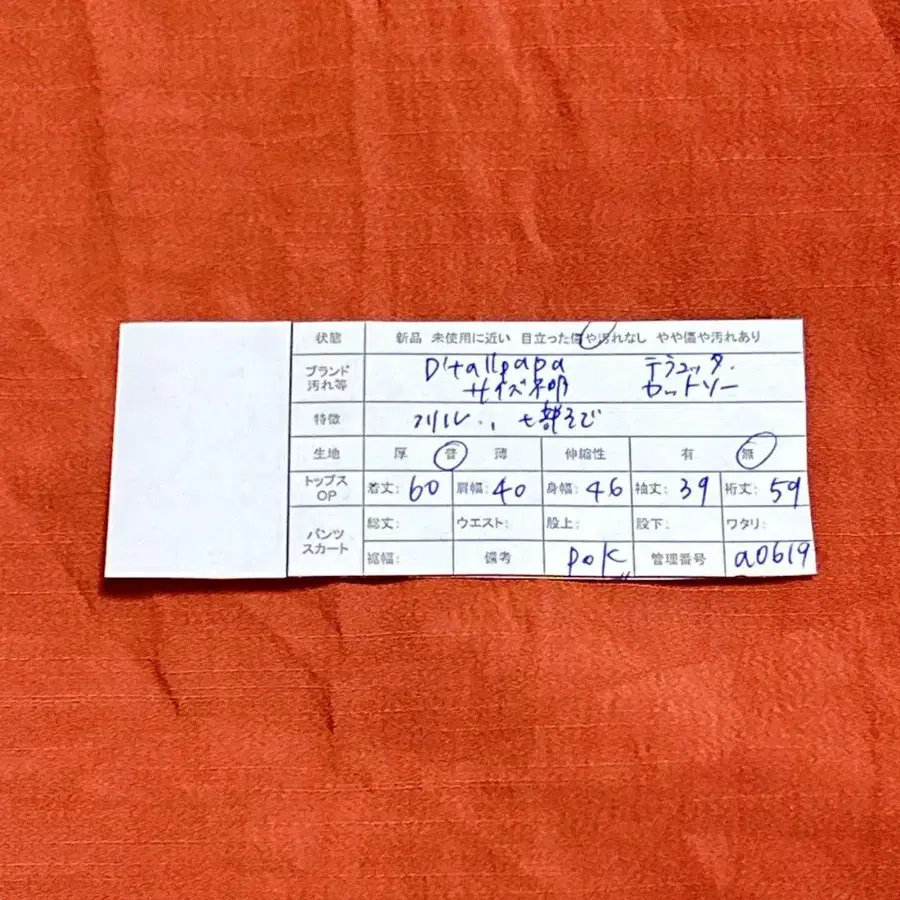 状態 新品 未使用に近い 目立った傷や汚れなし やや傷や汚れあり
ブランド 汚れ等 D'tallpapa サイズ不明 カットソー
特徴 フリル 七部そで
生地 厚 普 薄 伸縮性 有 無
トップス OP 着丈: 60 肩幅: 40 身幅: 46 袖丈: 39 裄丈: 59
パンツ スカート 総丈: ウエスト: 股上: 股下: ワタリ:
裾幅: 備考 pok 管理番号 a0619